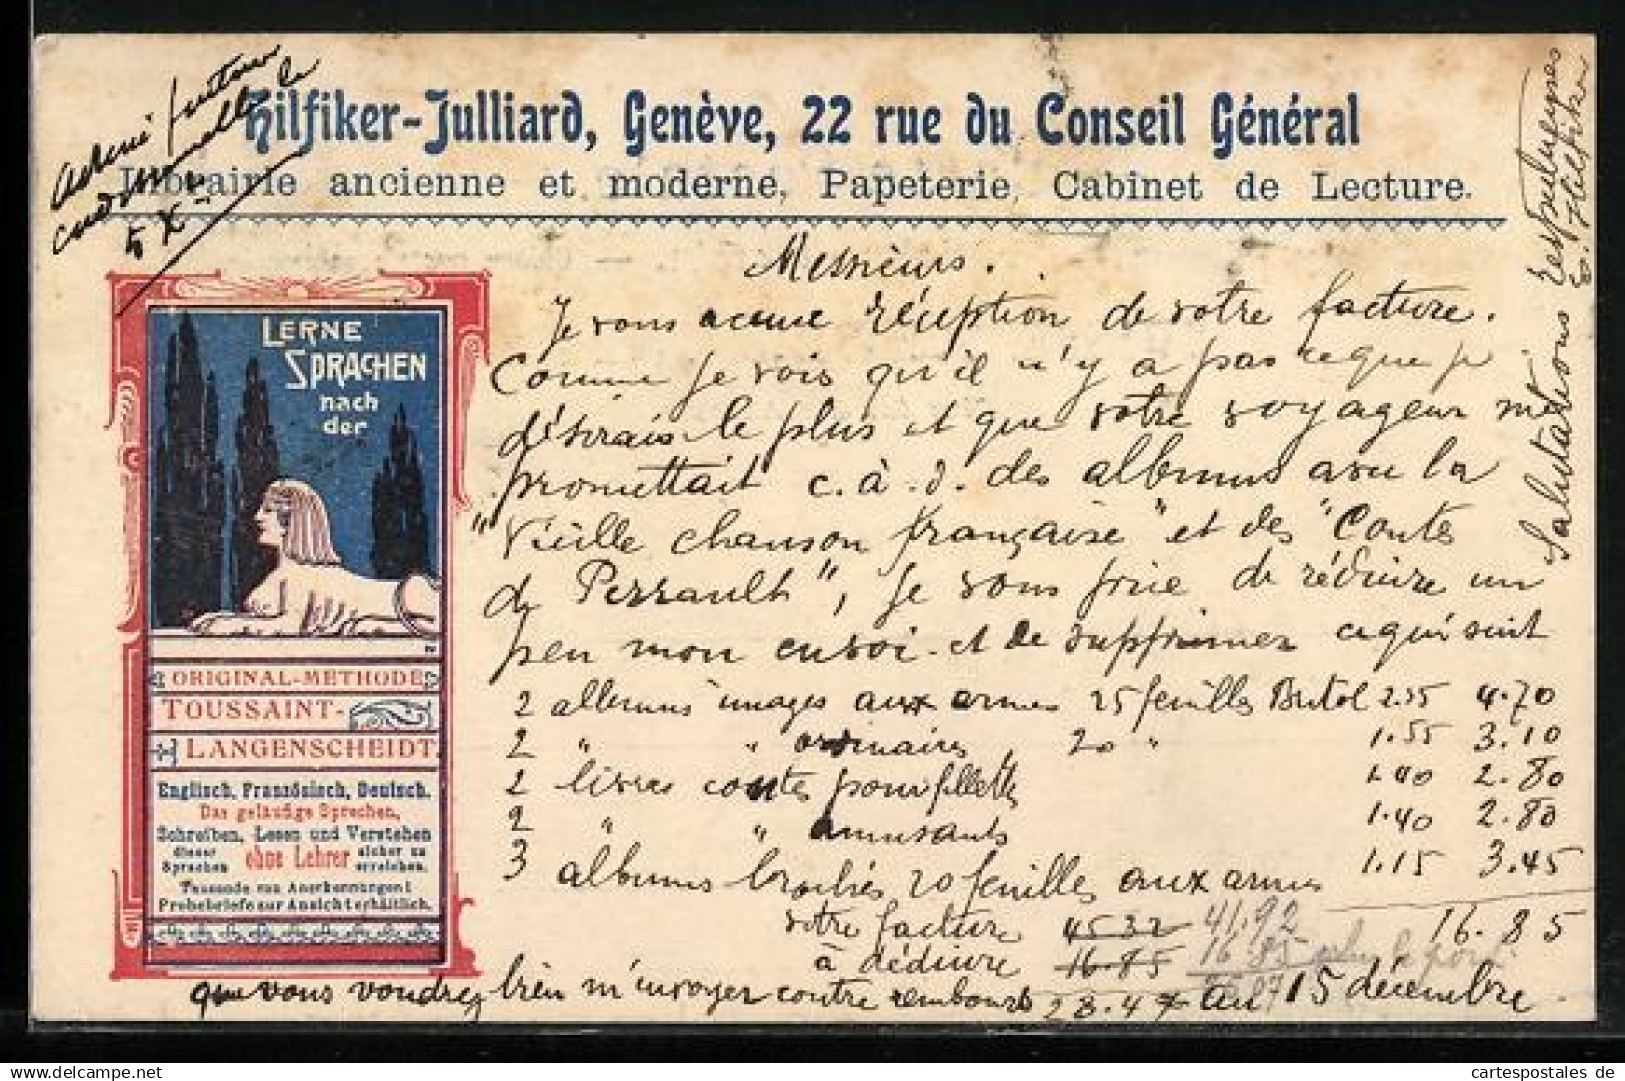 Hilfiker-Julliard, Genève, 22 rue du Conseil Général
Librairie ancienne et moderne, Papeterie, Cabinet de Lecture.
5 X
LERNE
SPRACHEN
nach
der
ORIGINAL-METHODE
TOUSSAINT-
LANGENSCHEIDT.
Englisch, Französisch, Deutsch.
Das geläufige Sprechen,
Schreiben, Lesen und Verstehen
dieser Sprachen ohne Lehrer sicher zu erreichen.
Tausende von Anerkennungen!
Probebriefe zur Ansicht erhältlich.
Messieurs.
Je vous accuse réception de votre facture.
Comme je vois qu'il n'y a pas ce que je
désirais le plus et que votre voyageur me
promettait c. à. d. des albums avec la
"Vieille chanson française" et des "Contes
de Perrault", je vous prie de réduire un
peu mon envoi et de supprimer ce qui suit
2 albums images aux armes 25 feuilles Bristol 2.35 4.70
2 " " ordinaires 20 " 1.55 3.10
2 livres contes pour fillettes 1.40 2.80
2 " " amusants 1.40 2.80
3 albums brochés 20 feuilles aux armes 1.15 3.45
votre facture 45 32 41.92 16.85
à déduire 16.85 16 85
que vous voudrez bien m'envoyer contre rembours 28.47 au 15 décembre.
Salutations respectueuses
E. Hilfiker
cartespostales de